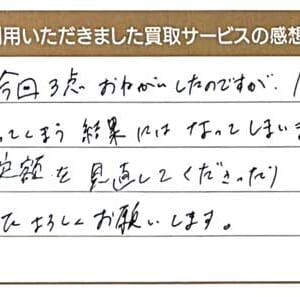 用いただきました買取サービスの感想
今回3点おねがいしたのですが、1
ってしまう結果にはなってしまいま
定額を見直してくださったり
たよろしくお願いします。